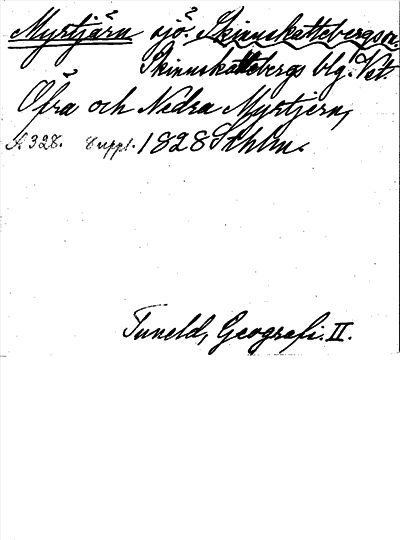 Myrtjärn sjö. Skinnskattebergs sn.
Skinnskattebergs blg. Vst.
Öfra och Nedra Myrtjern,
S. 328. Suppl. 1828 Sthlm.
Tuneld, Geografi. II.